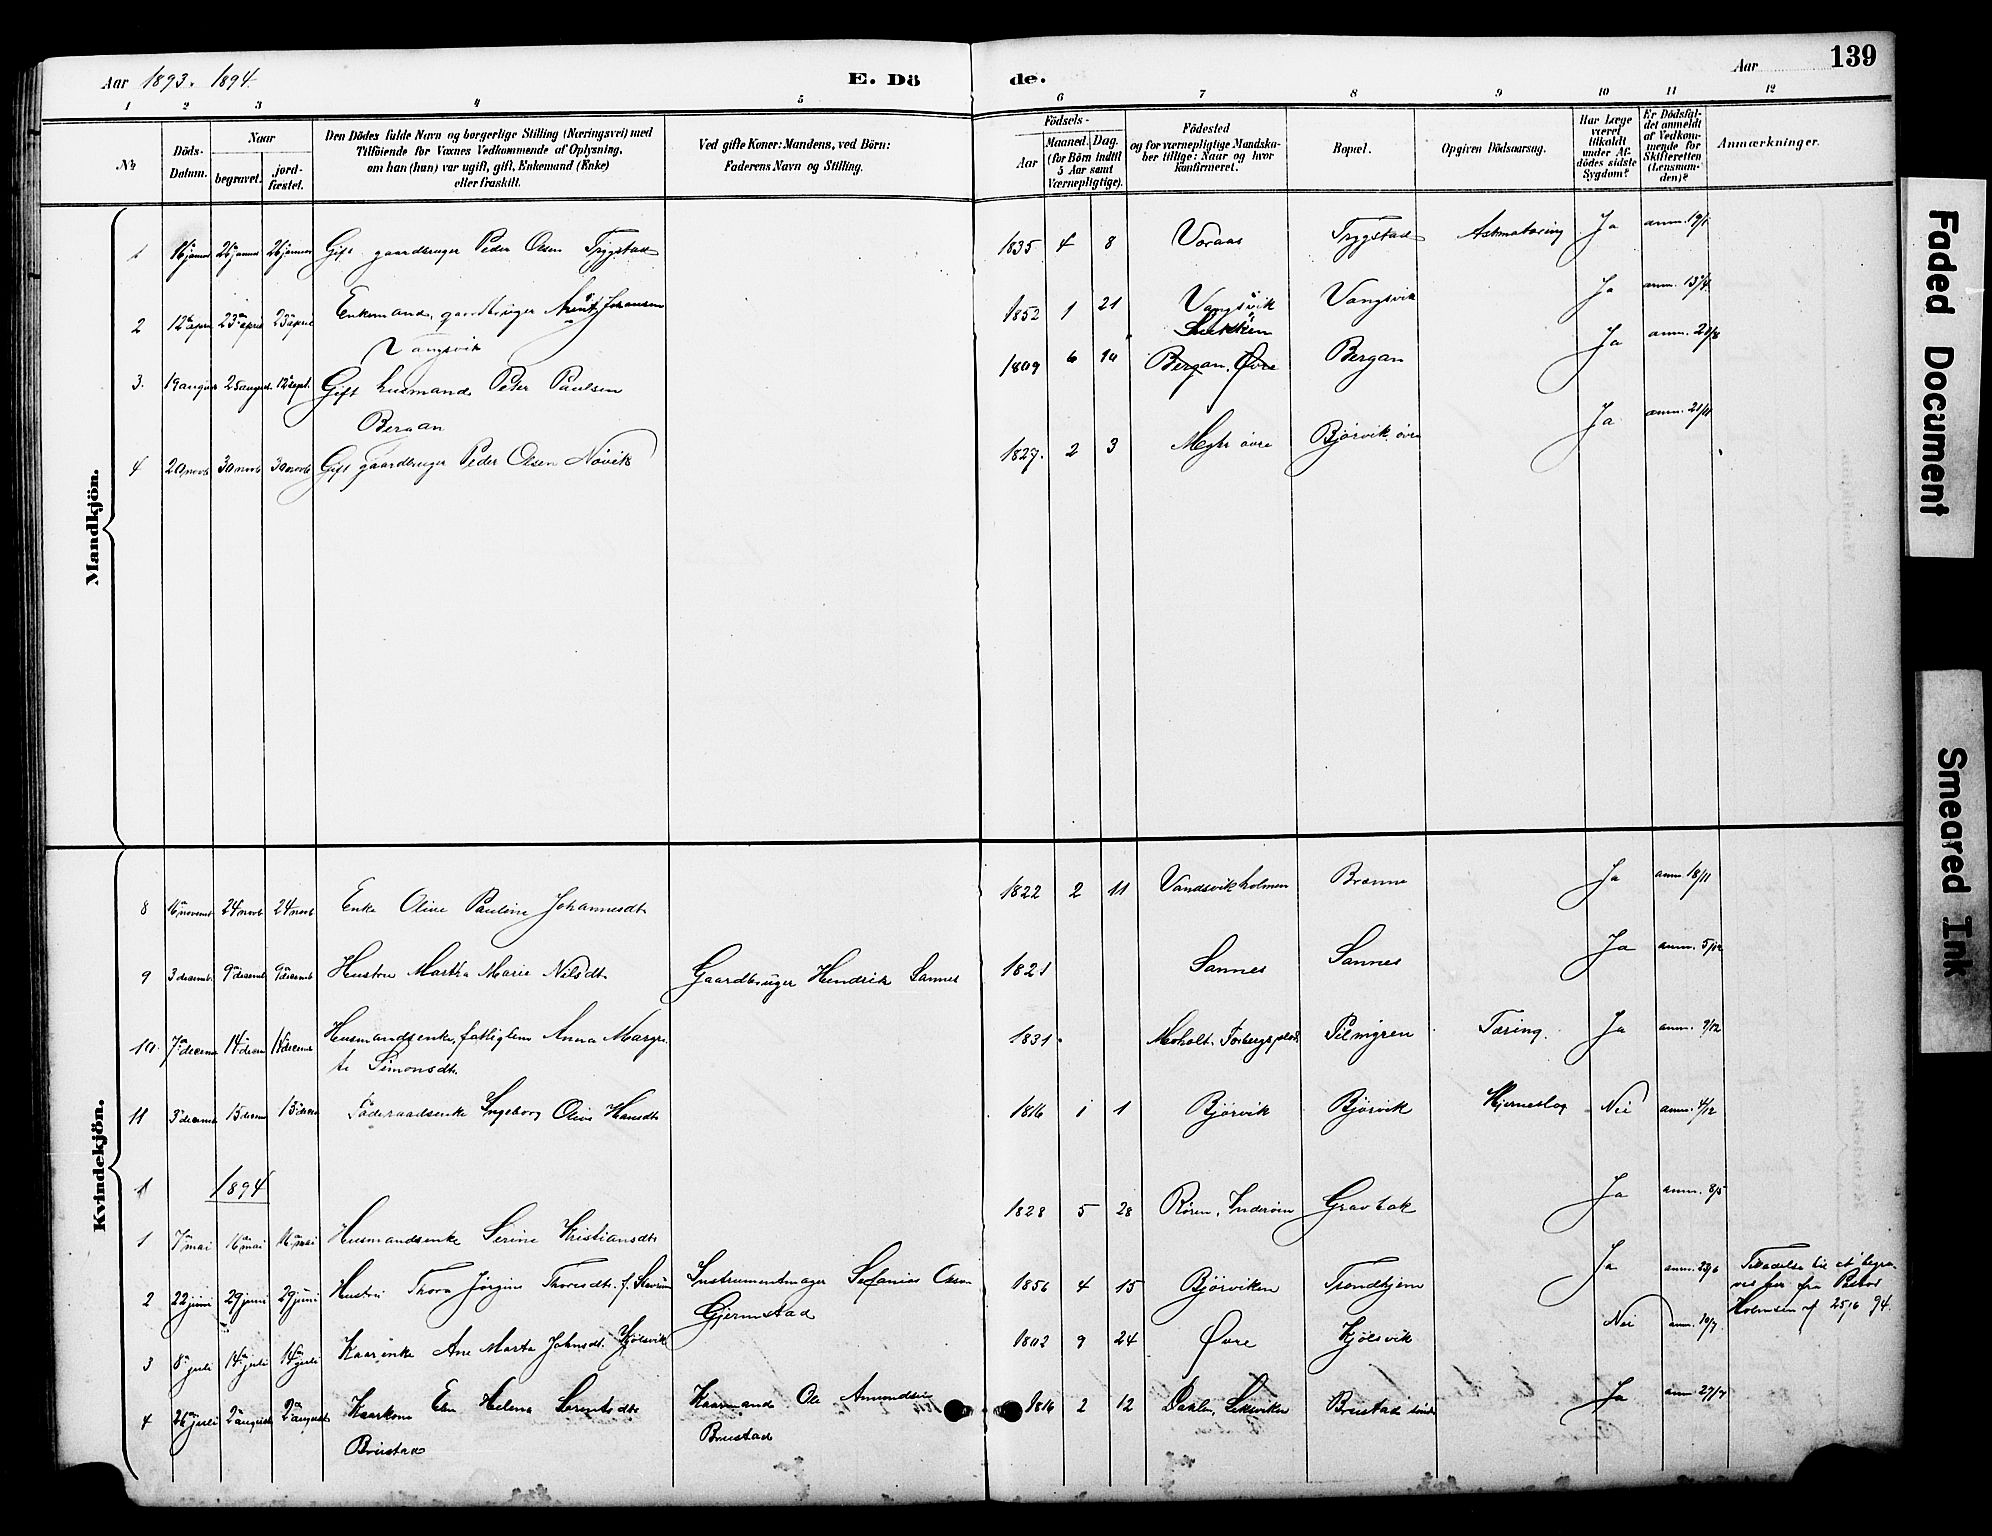 Aar 1893. 1894. E. Dö
de. Aar 139
1 2 3 4 5 6 7 8 9 10 11 12
№ Döds-Datum. Naar begravet. jordfæstet. Den Dödes fulde Navn og borgerlige Stilling (Næringsvei) med Tilföiende for Voxnes Vedkommende af Oplysning, om han (hun) var ugift, gift, Enkemand (Enke) eller fraskilt. Ved gifte Koner: Mandens, ved Börn: Faderens Navn og Stilling.
Födsels- Aar Maaned. Dag. (for Börn indtil 5 Aar samt Værnepligtige). Födested og for værnepligtige Mandskaber tillige: Naar og hvor konfirmeret. Bopæl. Opgiven Dödsaarsag. Har Læge været tilkaldt under Afdödes sidste Sygdom? Er Dödsfaldet anmeldt af Vedkommende for Skifteretten (Lensmanden)? Anmærkninger.
Mandkjön.
1 16 januar 26 januar 26 januar Gift gaardbruger Peder Olsen Trygstad 1835 4 8 Voraas Trygstad Ja anm. 19/1
2 12 april 23 april 23 april Enkemand, gaardbruger Arent Johansen
Vangsvik 1852 1 21 Vangsvik Vangsvik Ja anm. 13/4
3. 19 august 25 august 12 sept. Gift husmand Peter Paulsen
Bergan 1809 6 10 Bergan, Øvre Bergan Ja anm. 21/8
4 20 novb 30 novb 30 novb Gift gaardbruger Peder Olsen 1827. 2 3 Myhr övre Bjørvik övre Ja anm. 21/11
Kvindekjön.
8 16 novemb 24 novb 24 novb Enke Oline Pauline Johannesdt. 1822 2 11 Vandsvikholmen Brænne Ja anm. 18/11
9 3 decemb. 9 decemb 9 decemb Hustru Martha Marie Nilsdt. Gaardbruger Hendrik Sannes 1821 Sannes Sannes Ja anm. 5/12
10. 7 decemb 14 decem 14 decemb Husmandsenke, fattiglem Anna Margre-
te Simonsdt. 1831 Moholt. Forbergsplads Pilmyren Tæring. Ja anm. 9/12
11 3 decemb 15 decem 15 decem Föderaadsenke Ingeborg Oline Hansdt. 1816 1 1 Bjørvik Bjørvik Hjerneslag Nei anm. 4/12
1 1894
1 7 mai 16 mai 16 mai Husmandsenke Serine Kristiansdt. 1828 5 28 Røren, Inderøen Gravbak Ja anm. 8/5
2 22 juni 29 juni 29 juni Hustru Thora Jørgine Thoresdt. f. Instrumentmager Sefanias Olsen
Gjermstad 1856 4 15 Bjørviken Trondhjem Ja anm. 23/6 Tilladelse til at begra-
ves her fra Pastor
Holmsen af 25/6 94.
3 8 juli 14 juli 14 juli Kaarenke Ane Marta Johnsdt. Kjølsvik 1802 9 24 Øvre Kjølsvik Nei anm. 10/7
4 26 juli 2 august 2 august Kaarkone Elen Helena Lorentsdt. Kaarmand Ole Amundsen 1816 2 12 Dahlen, Leksviken Breistad Ja anm. 27/7
Breistad Breistad
Faded Document
Smeared Ink